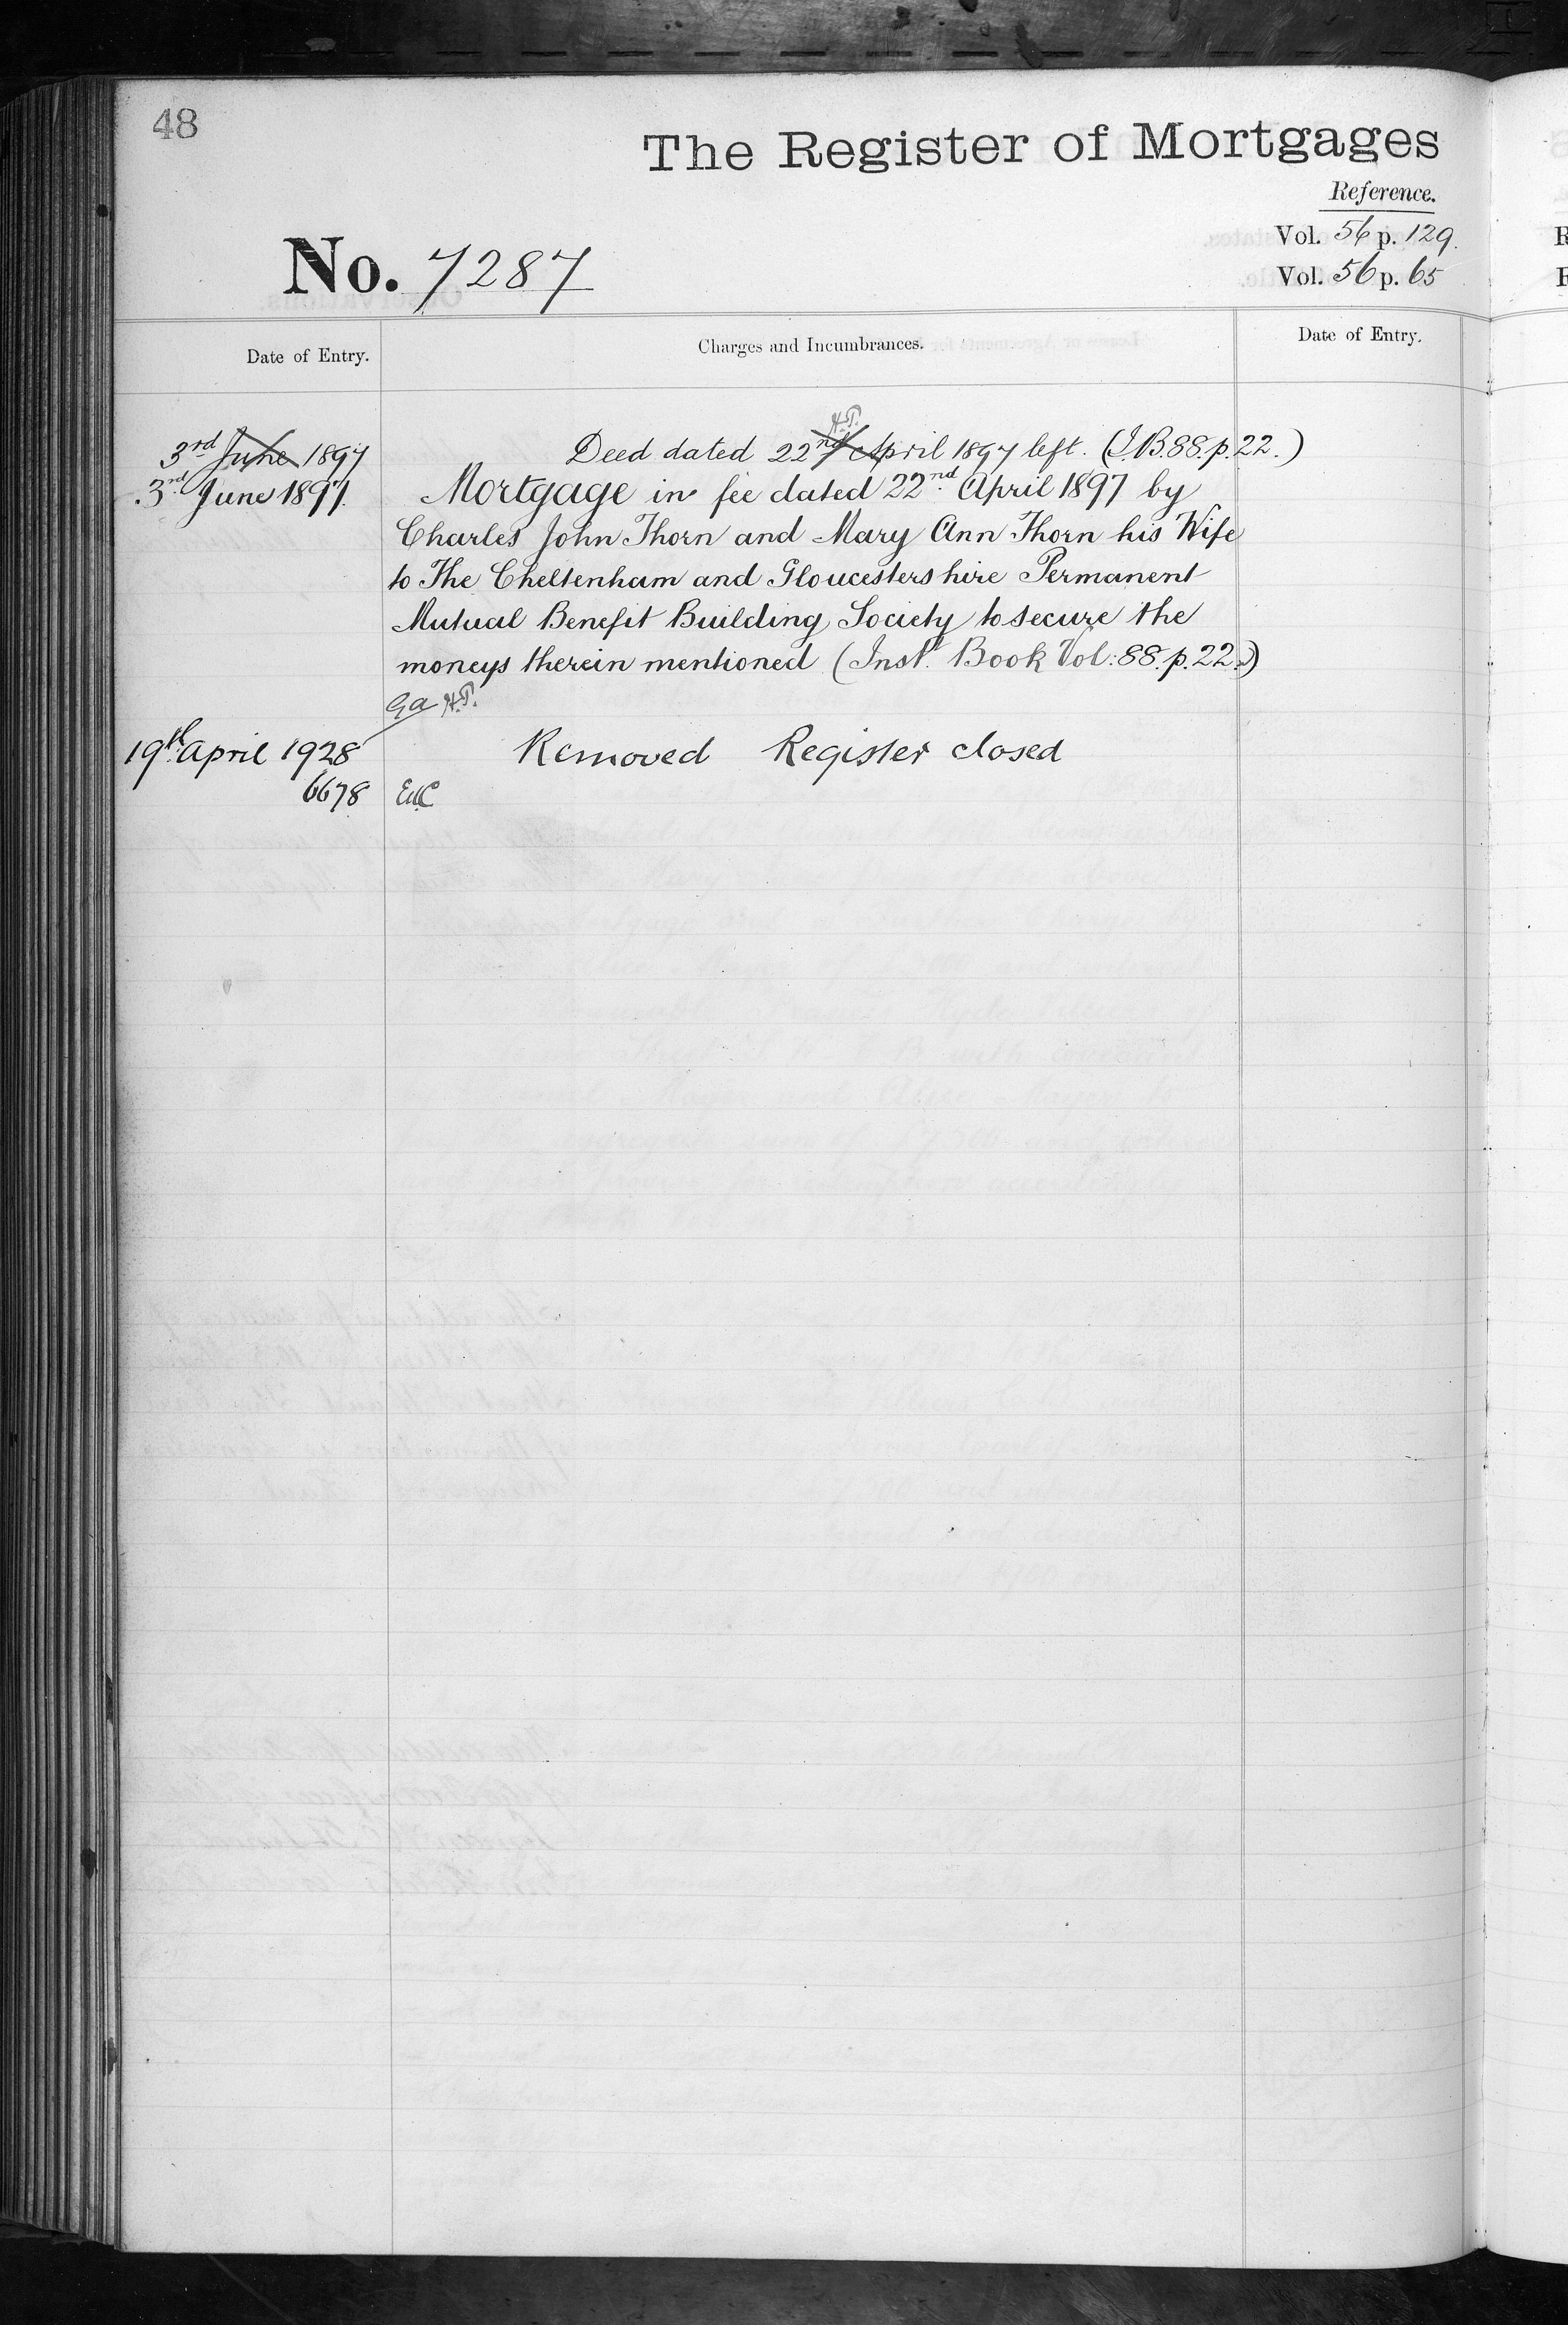 48
The Register of Mortgages
Reference.
Vol. 56 p. 129.
No. 7287
Vol. 56 p. 65
Date of Entry.
Charges and Incumbrances.
Date of Entry.
H.T.
3rd June 1897 Deed dated 22nd April 1897 left. (I.B. 88. p. 22.)
3rd June 1897. Mortgage in fee dated 22nd April 1897 by
Charles John Thorn and Mary Ann Thorn his Wife
to The Cheltenham and Gloucestershire Permanent
Mutual Benefit Building Society to secure the
moneys therein mentioned (Inst. Book Vol: 88. p. 22.)
H.T.
19th April 1928 Removed Register closed
6678